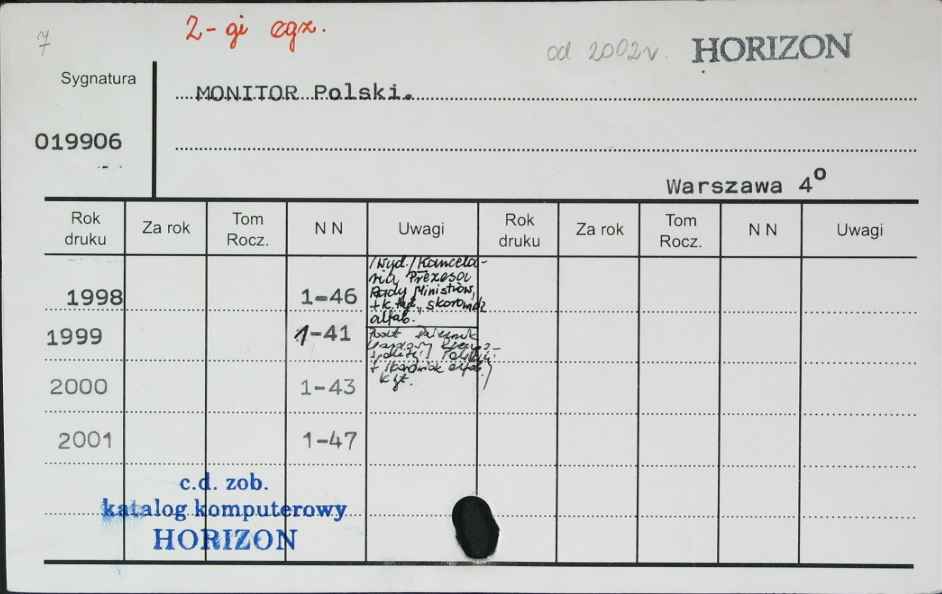 7
2-gi egz.
od 2002 r. HORIZON
Sygnatura
MONITOR Polski.
019906
Warszawa 4°
Rok druku Za rok Tom Rocz. N N Uwagi Rok druku Za rok Tom Rocz. N N Uwagi
/Wyd./Kancela-
ria Prezesa
Rady Ministrów,
alfab.
1998 1-46
1999 1-41
2000 1-43
2001 1-47
c.d. zob.
katalog komputerowy
HORIZON